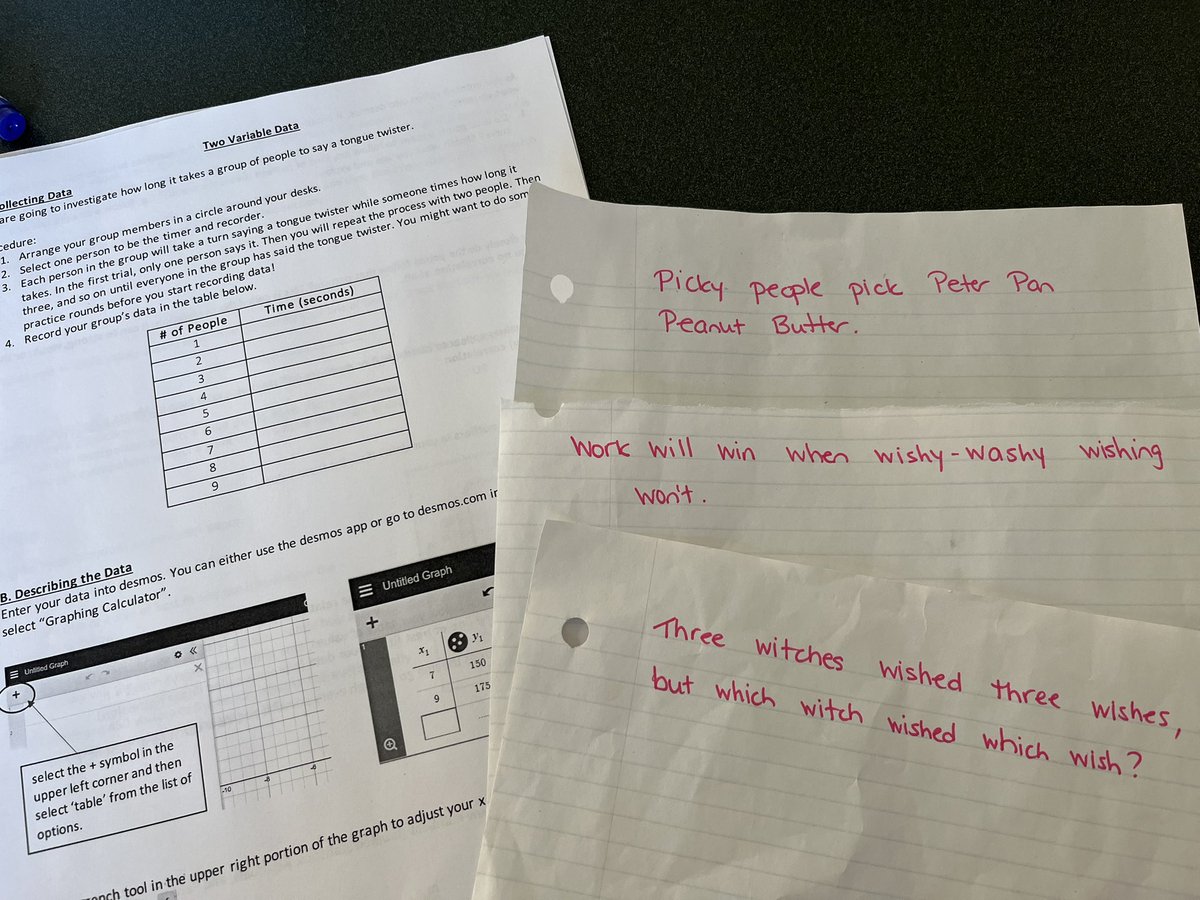 Two Variable Data
ollecting Data
are going to investigate how long it takes a group of people to say a tongue twister.
cedure:
1. Arrange your group members in a circle around your desks.
2. Select one person to be the timer and recorder.
3. Each person in the group will take a turn saying a tongue twister while someone times how long it
takes. In the first trial, only one person says it. Then you will repeat the process with two people. Then
three, and so on until everyone in the group has said the tongue twister. You might want to do som
practice rounds before you start recording data!
4. Record your group's data in the table below.
# of People Time (seconds)
1
2
3
4
5
6
7
8
9
B. Describing the Data
Enter your data into desmos. You can either use the desmos app or go to desmos.com ir
select "Graphing Calculator".
Untitled Graph
+
select the + symbol in the
upper left corner and then
select 'table' from the list of
options.
-10 -8 -6
Untitled Graph
+
1
x₁ y₁
7 150
9 175
ench tool in the upper right portion of the graph to adjust your x
Picky people pick Peter Pan
Peanut Butter.
Work will win when wishy-washy wishing
won't.
Three witches wished three wishes,
but which witch wished which wish?